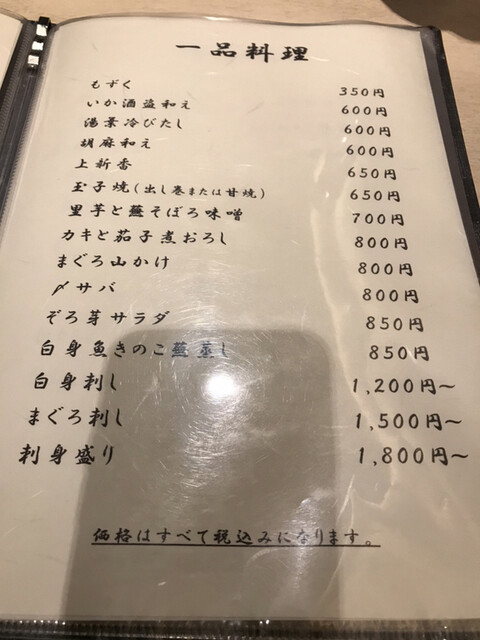 一品料理
もずく 350円
いか酒盗和え 600円
湯葉冷びたし 600円
胡麻和え 600円
上新香 650円
玉子焼(出し巻または甘焼) 650円
里芋と蕪そぼろ味噌 700円
カキと茄子煮おろし 800円
まぐろ山かけ 800円
〆サバ 800円
ぞろ芽サラダ 850円
白身魚きのこ蕪蒸し 850円
白身刺し 1,200円~
まぐろ刺し 1,500円~
刺身盛り 1,800円~
価格はすべて税込みになります。